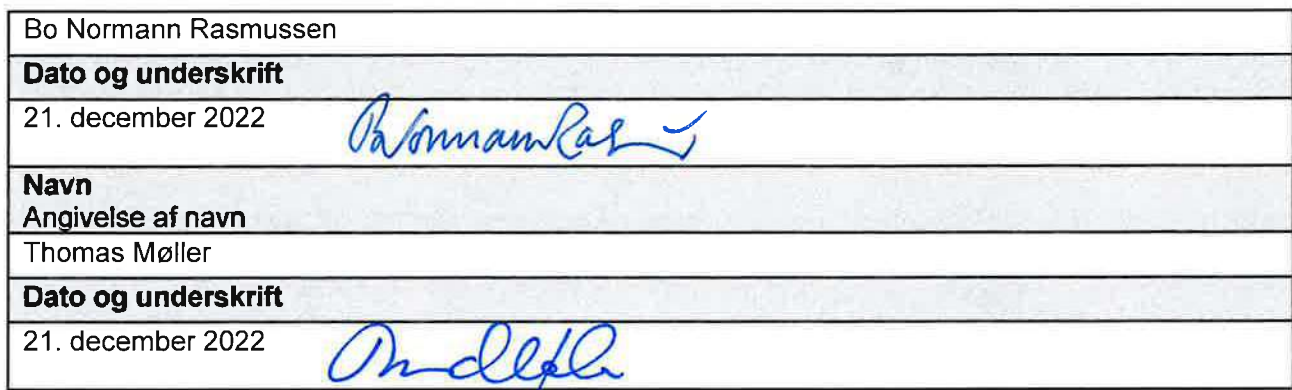 Bo Normann Rasmussen
Dato og underskrift
21. december 2022
Navn
Angivelse af navn
Thomas Møller
Dato og underskrift
21. december 2022